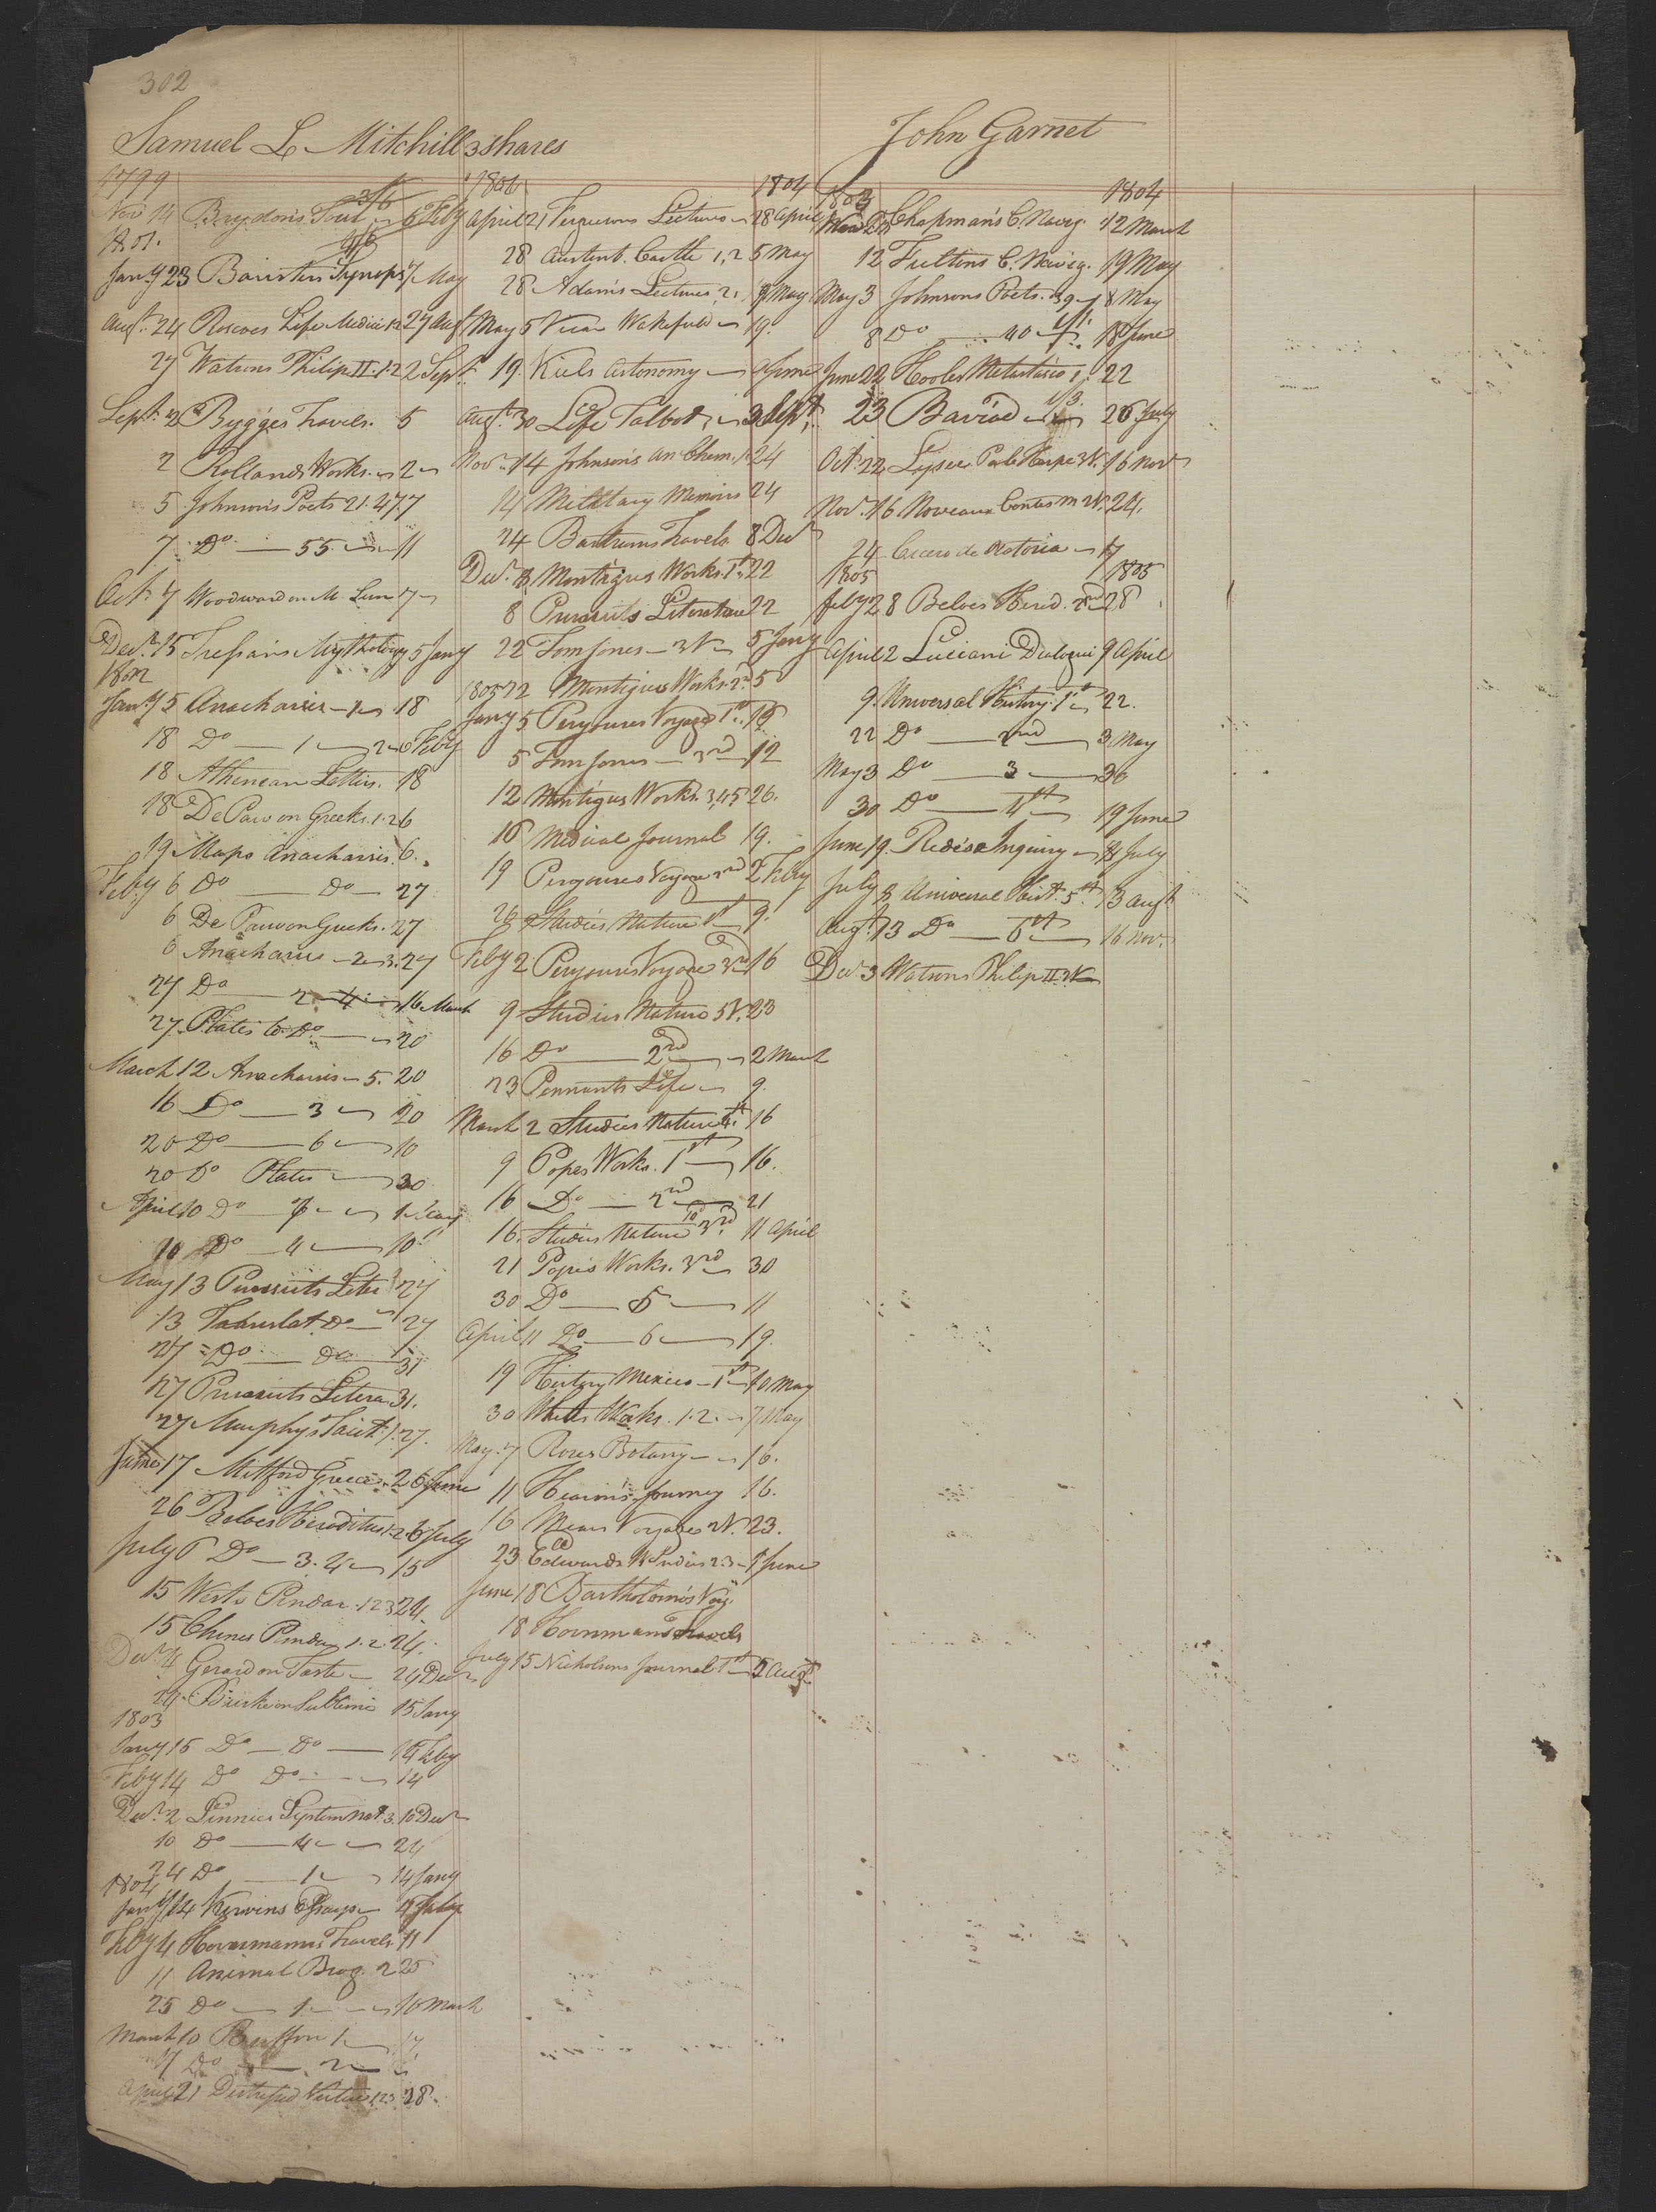 302
Samuel L Mitchill 3 shares
1799
Nov 14 Brydon's Tour 6 Feby
2/6
1801.
4/6
Jany 23 Banisters Synops 7. May
Augt. 24 Roscoes Life Medici 1.2 27 Augt
27 Watsons Philip II. 1.2 2 Sept.
Sept. 2 Bygges Travels. 5
2 Rollands Works. 2
5 Johnsons Poets 21. 47. 7
7 Do 55. 11
Oct. 7 Woodward on M. Sun 7
Decr. 15 Tressans Mythology 5 Jany
1802
Jany 5 Anacharsis 1 18
18 Do 1 2 6 Feby
18 Athenean Letters. 18
18 De Paw on Greeks. 1.2 6
19 Maps Anacharsis. 6.
Feby 6 Do Do 27
6 De Pauw on Greeks. 27
6 Anacharsis 2 3. 27
27 Do 2 4 16 March
27 Plates to Do. 20
March 12 Anacharsis 5. 20
16 Do 3 20
20 Do 6 10
20 Do Plates 30
April 10 Do 7 1 May
10 Do 4 10
May 13 Pursuits Liter 27
13 Translat. Do 27
27 Do Do 31
27 Pursuits Litera 31.
27 Murphys Tacit. 1. 27.
June 17 Mitford Greece 26 June
26 Beloes Heroditus 1.2 6 July
July 6 Do 3. 4 15
15 Wests Pindar. 1 2 3 24.
15 Greenes Pindar 1.2. 24.
Decr. 4 Gerard on Taste 24 Decr
24 Burke on Sublime 15 Jany
1803
Jany 15 Do Do 14 Feby
Feby 14 Do Do 14
Decr. 2 Linneus System Nat. 3. 10 Decr
10 Do 4 24
24 Do 1 14 Jany
1804
Jany 14 Kirwins Essays 4 Feby
Feby 4 Hornemanns Travels 11
11 Animal Biog. 2 25
25 Do 1 10 March
March 10 Buffon 1 17
17 Do 2
April 21 Distressed Virtue 1.2.3 28.
1804 1804
April 21 Fergusons Lectures 28 April
28 Austenb. Castle 1, 2 5 May
28 Adams Lectures, 2, 9 May
May 5 Vicar Wakefield 19.
19. Kiels Astonomy June
Augt. 30 Life Talbot, 3 Sept.
Novr. 14 Johnsons An Chem. 1. 24
14 Military Memoirs 24
24 Bartrams Travels. 8 Decr
Decr. 8 Montagus Works. 1st. 22
8 Pursuits Literature 22
22 Tom Jones 3 V 5 Jany
1805 22 Montigus Works. 2d. 5
Jany 5 Perouses Voyage 1st. 19
5 Tom Jones 3rd 12
12 Montigus Works. 3,4,5 26.
16 Medical Journal 19.
19 Perouses Voyage 2nd 2 Feby
26 Studies Nature 1st 9.
Feby 2 Perouses Voyage 3rd 16
9 Studies Nature 5 V. 23
16 Do 2nd 2 March
23 Pennants Life 9.
March 2 Studies Nature 4th. 16
9 Popes Works. 1st 16.
16 Do 2nd 21
16. Studies Nature 3rd. 11 April
21 Popes Works. 3rd 30
30 Do 5 11
April 11 Do 6 19.
19 History Mexico 1st 10 May
30 Whites Works. 1.2. 7 May
May. 7 Roses Botany 16.
11 Hearnes Journey 16.
16 Mears Voyages 2V. 23.
23 Edwards W Indies 2.3 1 June
June 18 Bartholomes Voy.
18 Hornmans Travels
July 15 Nicholsons Journal 1st 5 Augt.
John Garnet
1803 1804
Chapmans C. Navig 12 March
12 Fultons C. Navig. 19 May
May 3 Johnsons Poets. 39 8 May
8 Do 40 18 June
June 22 Hooles Metastasio 1. 22
1/3.
23 Baviad 26 July
Oct. 22 Lycee Par la Harpe 3V. 16 Novr
Novr. 16 Noveaux Contes M 2V. 24.
24 Cicero de Oratoria 17
1805 1805
Feby 28 Beloes Herod. 2nd 28
April 2 Luciani Dialogui 9 April
9. Universal History. 1st 22.
22 Do 2nd 3 May
May 3 Do 3 30
30 Do 4th 19 June
June 19. Reids Inquiry 8 July
July 8 Universal Hist. 5th. 13 Augt
Augt. 13 Do 6th 16 Nov.
Decr 3 Watsons Philip II. 2V.